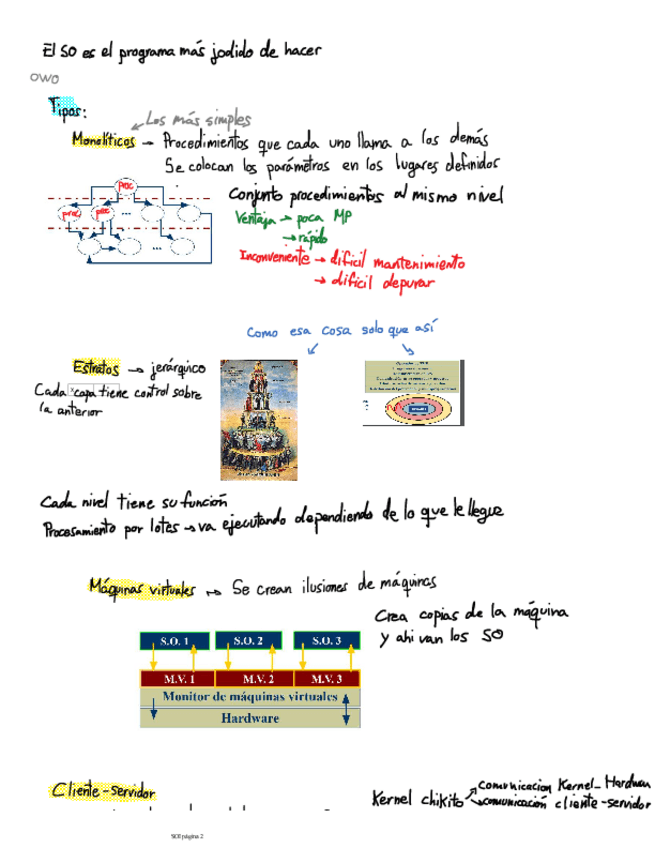 El SO es el programa más jodido de hacer
owo
Tipos:
Los más simples
Monolíticos → Procedimientos que cada uno llama a los demás
Se colocan los parámetros en los lugares definidos
Conjunto procedimientos al mismo nivel
proc
proc proc ...
...
Ventaja → poca MP
→ rápido
Inconveniente → difícil mantenimiento
→ difícil depurar
Como esa cosa solo que así
Estratos → jerárquico
Cada capa tiene control sobre
la anterior
Cada nivel tiene su función
Procesamiento por lotes → va ejecutando dependiendo de lo que le llegue
Máquinas virtuales → Se crean ilusiones de máquinas
Crea copias de la máquina
y ahi van los SO
S.O. 1 S.O. 2 S.O. 3
M.V. 1 M.V. 2 M.V. 3
Monitor de máquinas virtuales
Hardware
Cliente-servidor
Kernel chikito
comunicacion Kernel-Hardware
comunicación cliente-servidor
SOI página 2